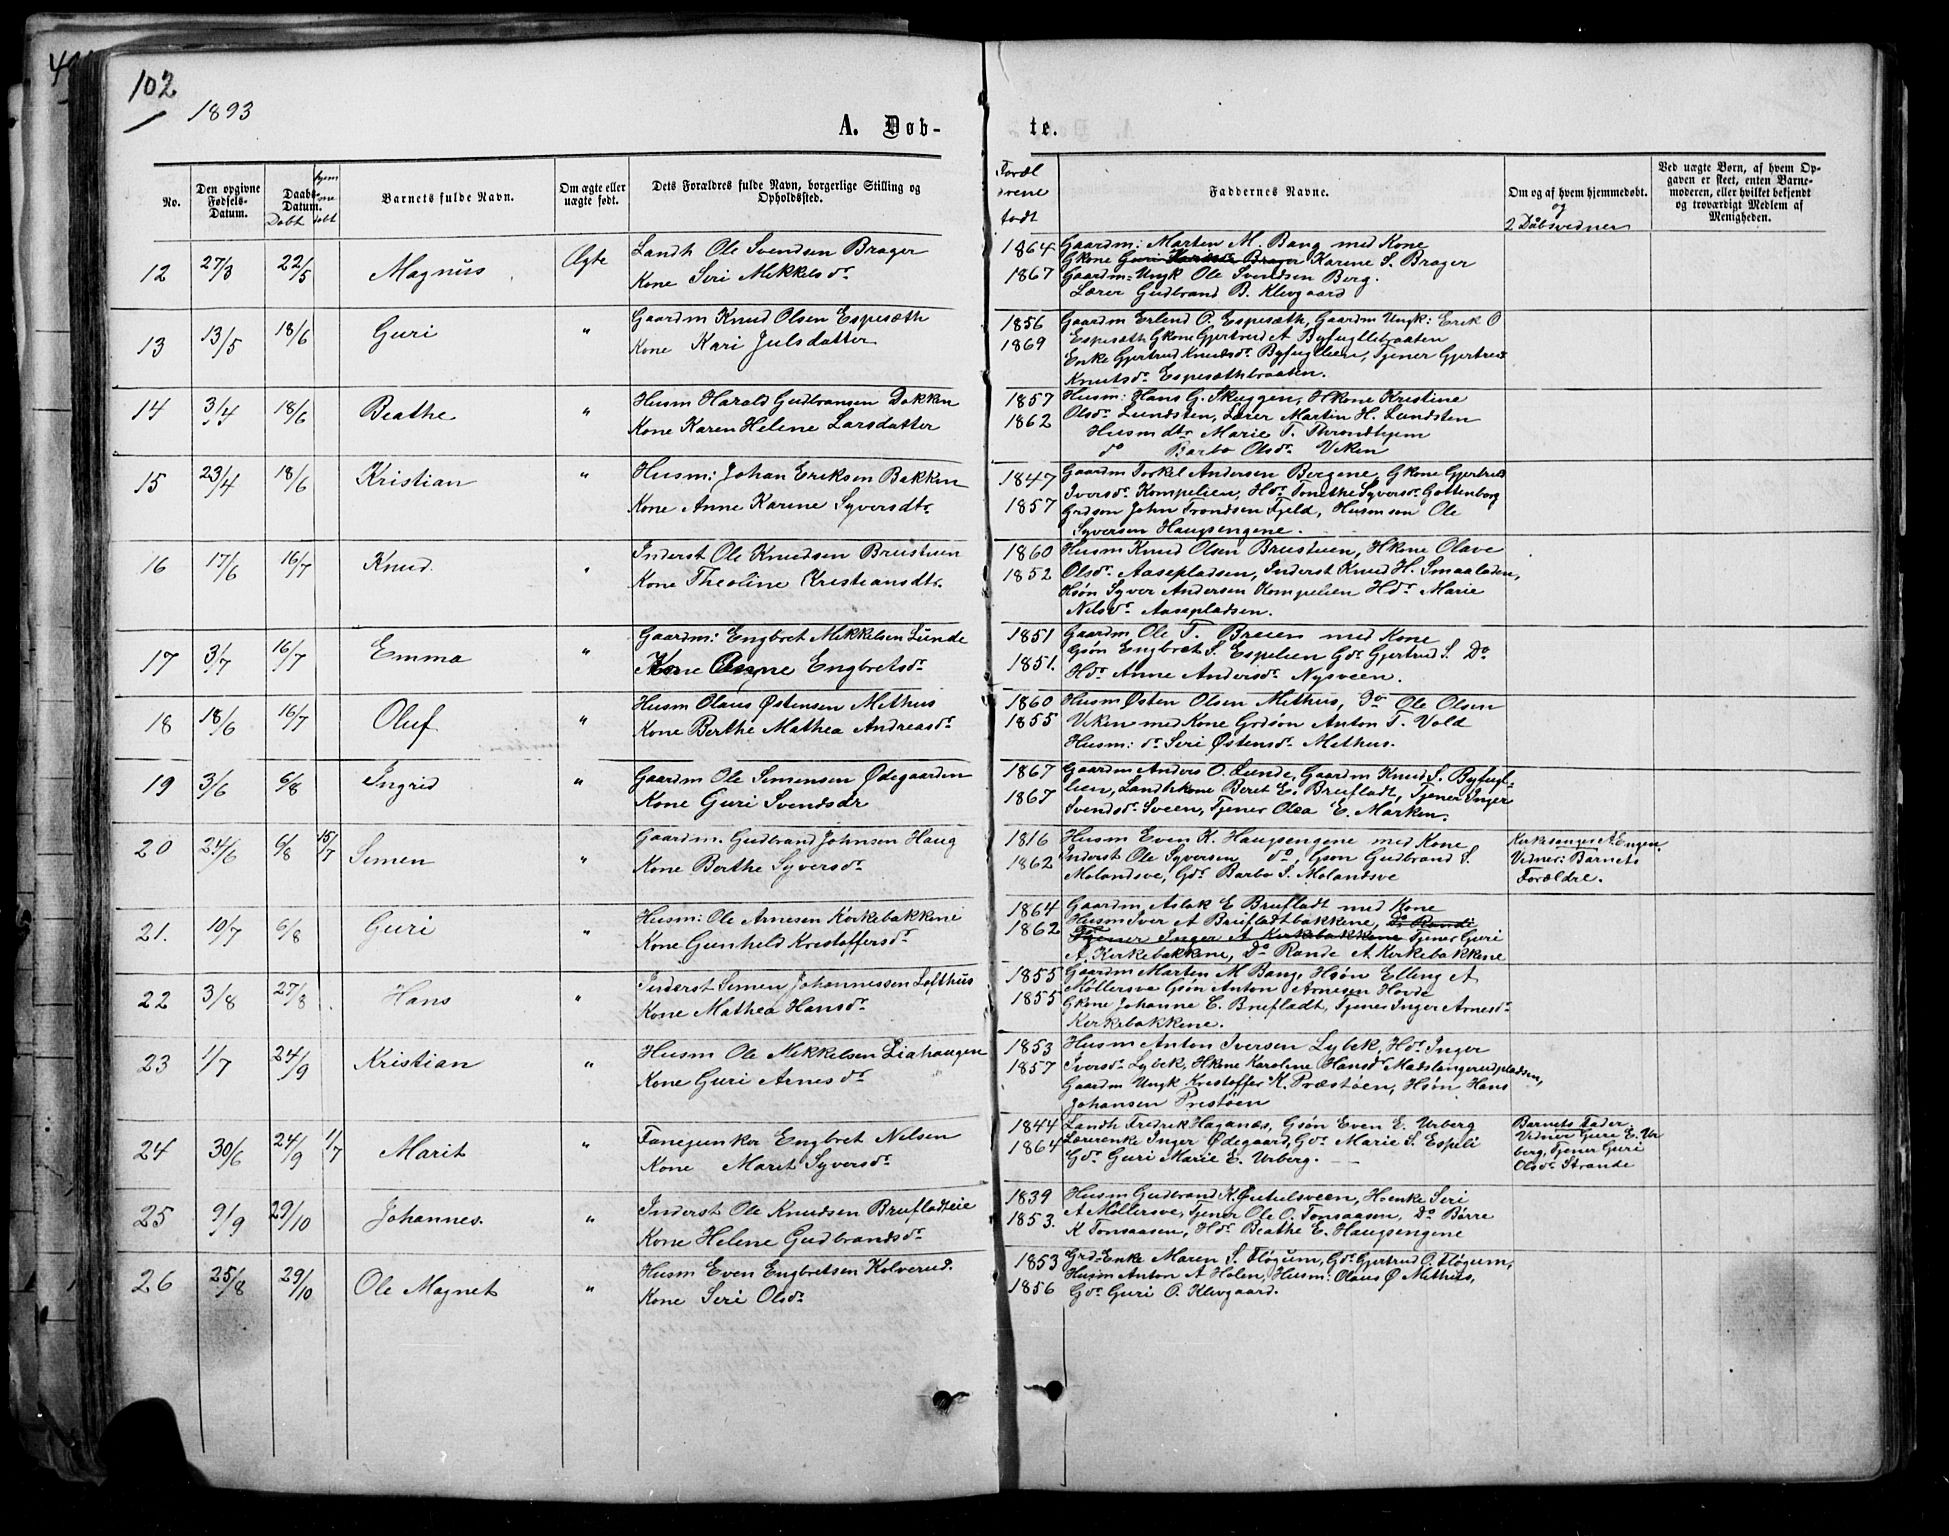 102
1893
A. Døb-
te.
No.
Den opgivne Fødsels-Datum.
Daabs Datum. Døbt
hjemme døbt
Barnets fulde Navn.
Om ægte eller uægte født.
Dets Forældres fulde Navn, borgerlige Stilling og Opholdssted.
Foræl
rene
født
Faddernes Navne.
Om og af hvem hjemmedøbt.
og
2 Dåbsvidner
Ved uægte Børn, af hvem Op-
gaven er skeet, enten Barne-
moderen, eller hvilket bekjendt
og troværdigt Medlem af
Menigheden.
12 27/3 22/5 Magnus Ægte
Landh Ole Svendsen Brager
Kone Siri Mekkelsdr
1864
1867
Gaardm: Marten M. Bang med Kone
Gkone Karine S. Brager
Gaardm: Ungk Ole Svendsen Berg.
Lærer Gudbrand B. Klevgaard
13 13/5 18/6 Guri "
Gaardm Knud Olsen Espesæth
Kone Kari Julsdatter
1856
1869
Gaardm Erlend O. Espesæth, Gaardm Ungk: Erik O
Espesæth Gkone Gjertrud A Byfugllebraaten
Enke Gjertrud Knudsdr Byfuglien, Tjener Gjertrud
Knutsdr Espesæthbraaten.
14 3/4 18/6 Beathe "
Husm Harald Gudbransen Dokken
Kone Karen Helene Larsdatter
1857
1862
Husm: Hans G. Skuggen, Hkone Kristine
Olsdr Lundsten, Lærer Martin H. Lundsten
Husm dtr Marie T. Throndhjem
do Barbo Olsdr Viken
15 23/4 18/6 Kristian "
Husm: Johan Eriksen Bakken
Kone Anne Karine Syversdtr.
1847
1857
Gaardm Torkel Andersen Bergene, Gkone Gjertrud
Iversdr Kompelien, Hdr Tonethe Syversdr Gottenborg
Grdson John Trondsen Fjeld, Husmson Ole
Syversen Haugsengene.
16 17/6 16/7 Knud. "
Inderst Ole Knudsen Brustuen
Kone Theoline Kristiansdtr.
1860
1852
Husm Knud Olsen Brustuen, Hkone Olave
Olsdr Aasepladsen, Inderst Knud H. Smaaladen,
Hsøn Syver Andersen Kompelien Hdr Marie
Nilsdr Aasepladsen.
17 3/7 16/7 Emma "
Gaardm: Engbret Mikkelsen Lunde
Kone Anne Engbretsdr
1851
1851.
Gaardm Ole T. Breien med Kone
Gsøn Engbret S. Espelien Gdr Gjertrud S. Do
Hdr Anne Andersdr Nysveen.
18 18/6 16/7 Oluf "
Husm Olaus Østensen Methus
Kone Berthe Mathea Andreasdr
1860
1855
Husm Østen Olsen Methus, Do Ole Olsen
Viken med Kone Grdsøn Anton T. Vold
Husm: dr Seri Østensdr Methus.
19 3/6 6/8 Ingrid "
Gaardm Ole Simensen Ødegaarden
Kone Guri Svendsdr
1867
1867
Gaardm Anders O. Lunde, Gaardm Knud S. Byfugl-
lien, Landhkone Beret E. Brufladt, Tjener Inger
Svendsdr Sveen, Tjener Olea E. Marken.
20 24/6 6/8 15/7 Simen "
Gaardm. Gudbrand Johnsen Haug
Kone Berthe Syversdr
1816
1862
Husm Even K. Haugsengene med Kone
Inderst Ole Syversen do, Gsøn Gudbrand S.
Molandsve, Gdr Barbo S. Molandsve
Kirkesanger A Engen.
Vidner: Barnets
Forældre.
21. 10/7 6/8 Guri "
Husm: Ole Arnesen Kirkebakkene
Kone Gunheld Kristoffersdr
1864
1862
Gaardm Aslak E Brufladt med Kone
Husm Iver A Brufladtbakkene, Do Randi
Tjener Inger A Kirkebakkene Tjener Guri
A. Kirkebakkene, Do Rande A Kirkebakkene
22 3/8 27/8 Hans "
Inderst Simen Johannessen Lofthus
Kone Mathea Hansdr
1855
1855
Gaardm Marten M Bang, Hsøn Elling A
Möllersve Gsøn Anton Arnesen Hovde
Gkone Johanne E. Brufladt, Tjener Inger Arnesdr
Kirkebakkene.
23 1/7 24/9 Kristian "
Husm Ole Mikkelsen Liahaugen
Kone Guri Arnesdr
1853
1857
Husm Anton Iversen Lybek, Hdr Inger
Iversdr Lybek, Hkone Karoline Hansdr Madslangerudpladsen,
Gaardm Ungk Kristoffer K. Præstøen, Hsøn Hans
Johansen Prestøen
24 30/6 24/9 1/7 Marit "
Fanejunker Engbret Nilsen
Kone Marit Syversdr
1844
1864
Landh Fredrik Haganæs, Gsøn Even E. Urberg
Lærerenke Inger Ødegaard, Gdr Marie S. Espeli
Gdr Guri Marie E. Urberg.
Barnets Fader
Vidner Guri E. Ur
berg, Tjener Guri
Olsdr Strande
25 9/9 29/10 Johannes. "
Inderst Ole Knudsen Brufladteie
Kone Helene Gudbrandsdr
1839
1853.
Husm Gudbrand K. Gutulsveen, Henke Siri
A Möllersve, Tjener Ole O. Tonsaasen, Do Börre
K Tonsaasen, Hdr Beathe E. Haugsengene
26 25/8 29/10 Ole Magnet "
Husm Even Engbretsen Kolverud.
Kone Seri Olsdr
1853
1856
Grd-Enke Maren S. Fløgum, Gdr Gjertrud O. Fløgum,
Husm Anton A Holen, Husm: Olaus Ø Methus,
Gdr Guri O. Klevgaard.